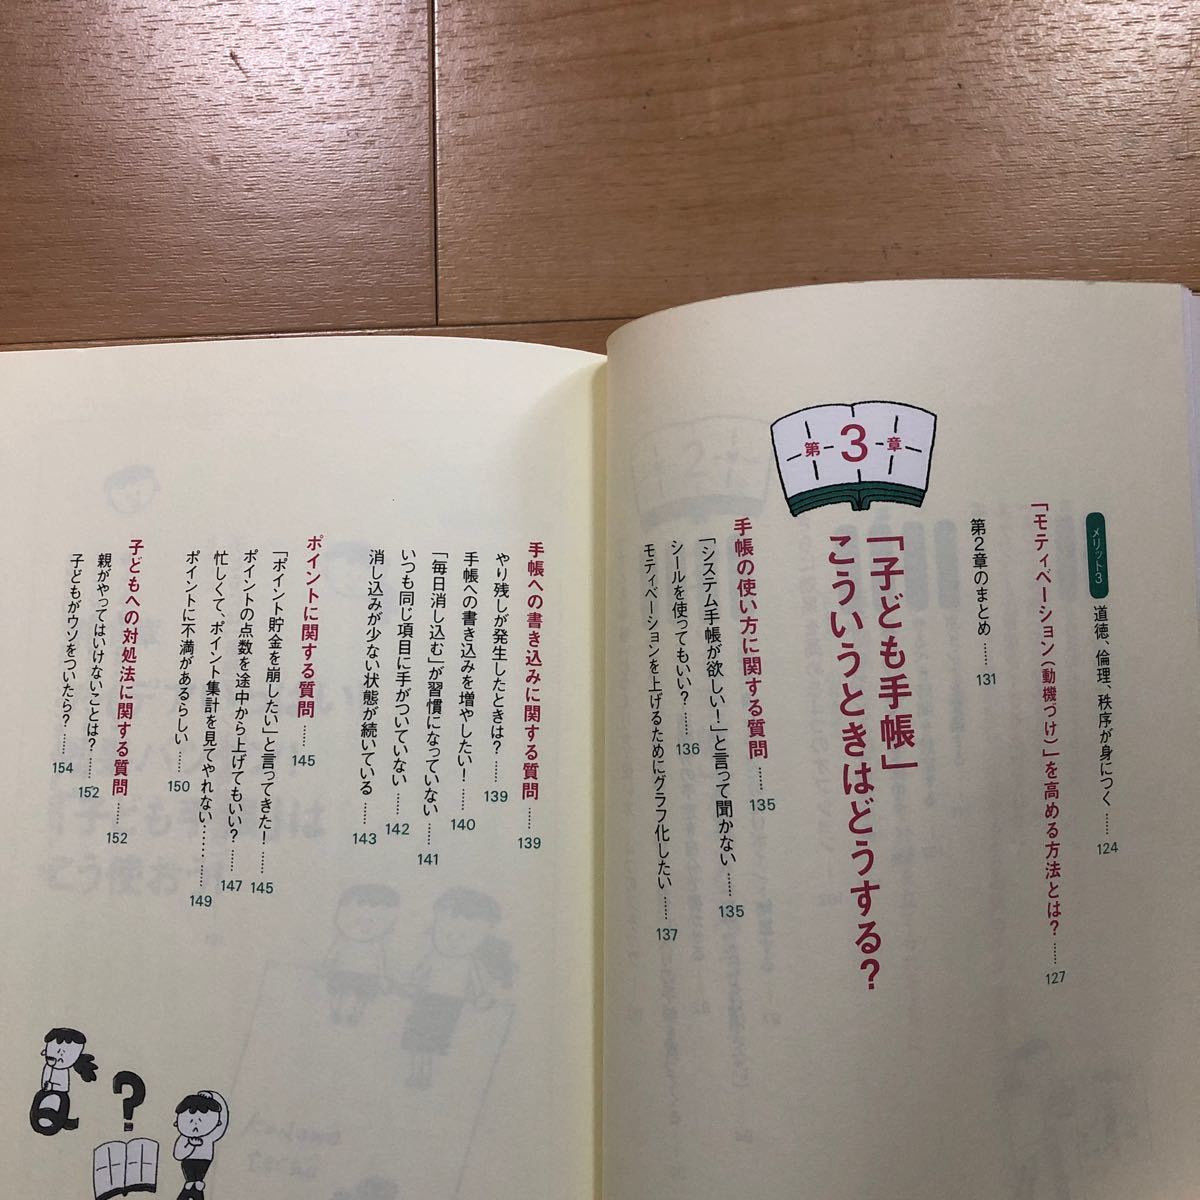 メリット3 道徳、倫理、秩序が身につく……124
「モティベーション(動機づけ)」を高める方法とは?……127
第2章のまとめ……131
第3章
「子ども手帳」
こういうときはどうする?
手帳の使い方に関する質問……135
「システム手帳が欲しい!」と言って聞かない……135
シールを使ってもいい?……136
モティベーションを上げるためにグラフ化したい……137
手帳への書き込みに関する質問……139
やり残しが発生したときは?……139
手帳への書き込みを増やしたい!……140
「毎日消し込む」が習慣になっていない……141
いつも同じ項目に手がついていない……142
消し込みが少ない状態が続いている……143
ポイントに関する質問……145
「ポイント貯金を崩したい」と言ってきた!……145
ポイントの点数を途中から上げてもいい?……147
忙しくて、ポイント集計を見てやれない……149
ポイントに不満があるらしい……150
子どもへの対処法に関する質問……152
親がやってはいけないことは?……152
子どもがウソをついたら?……154
Q
?